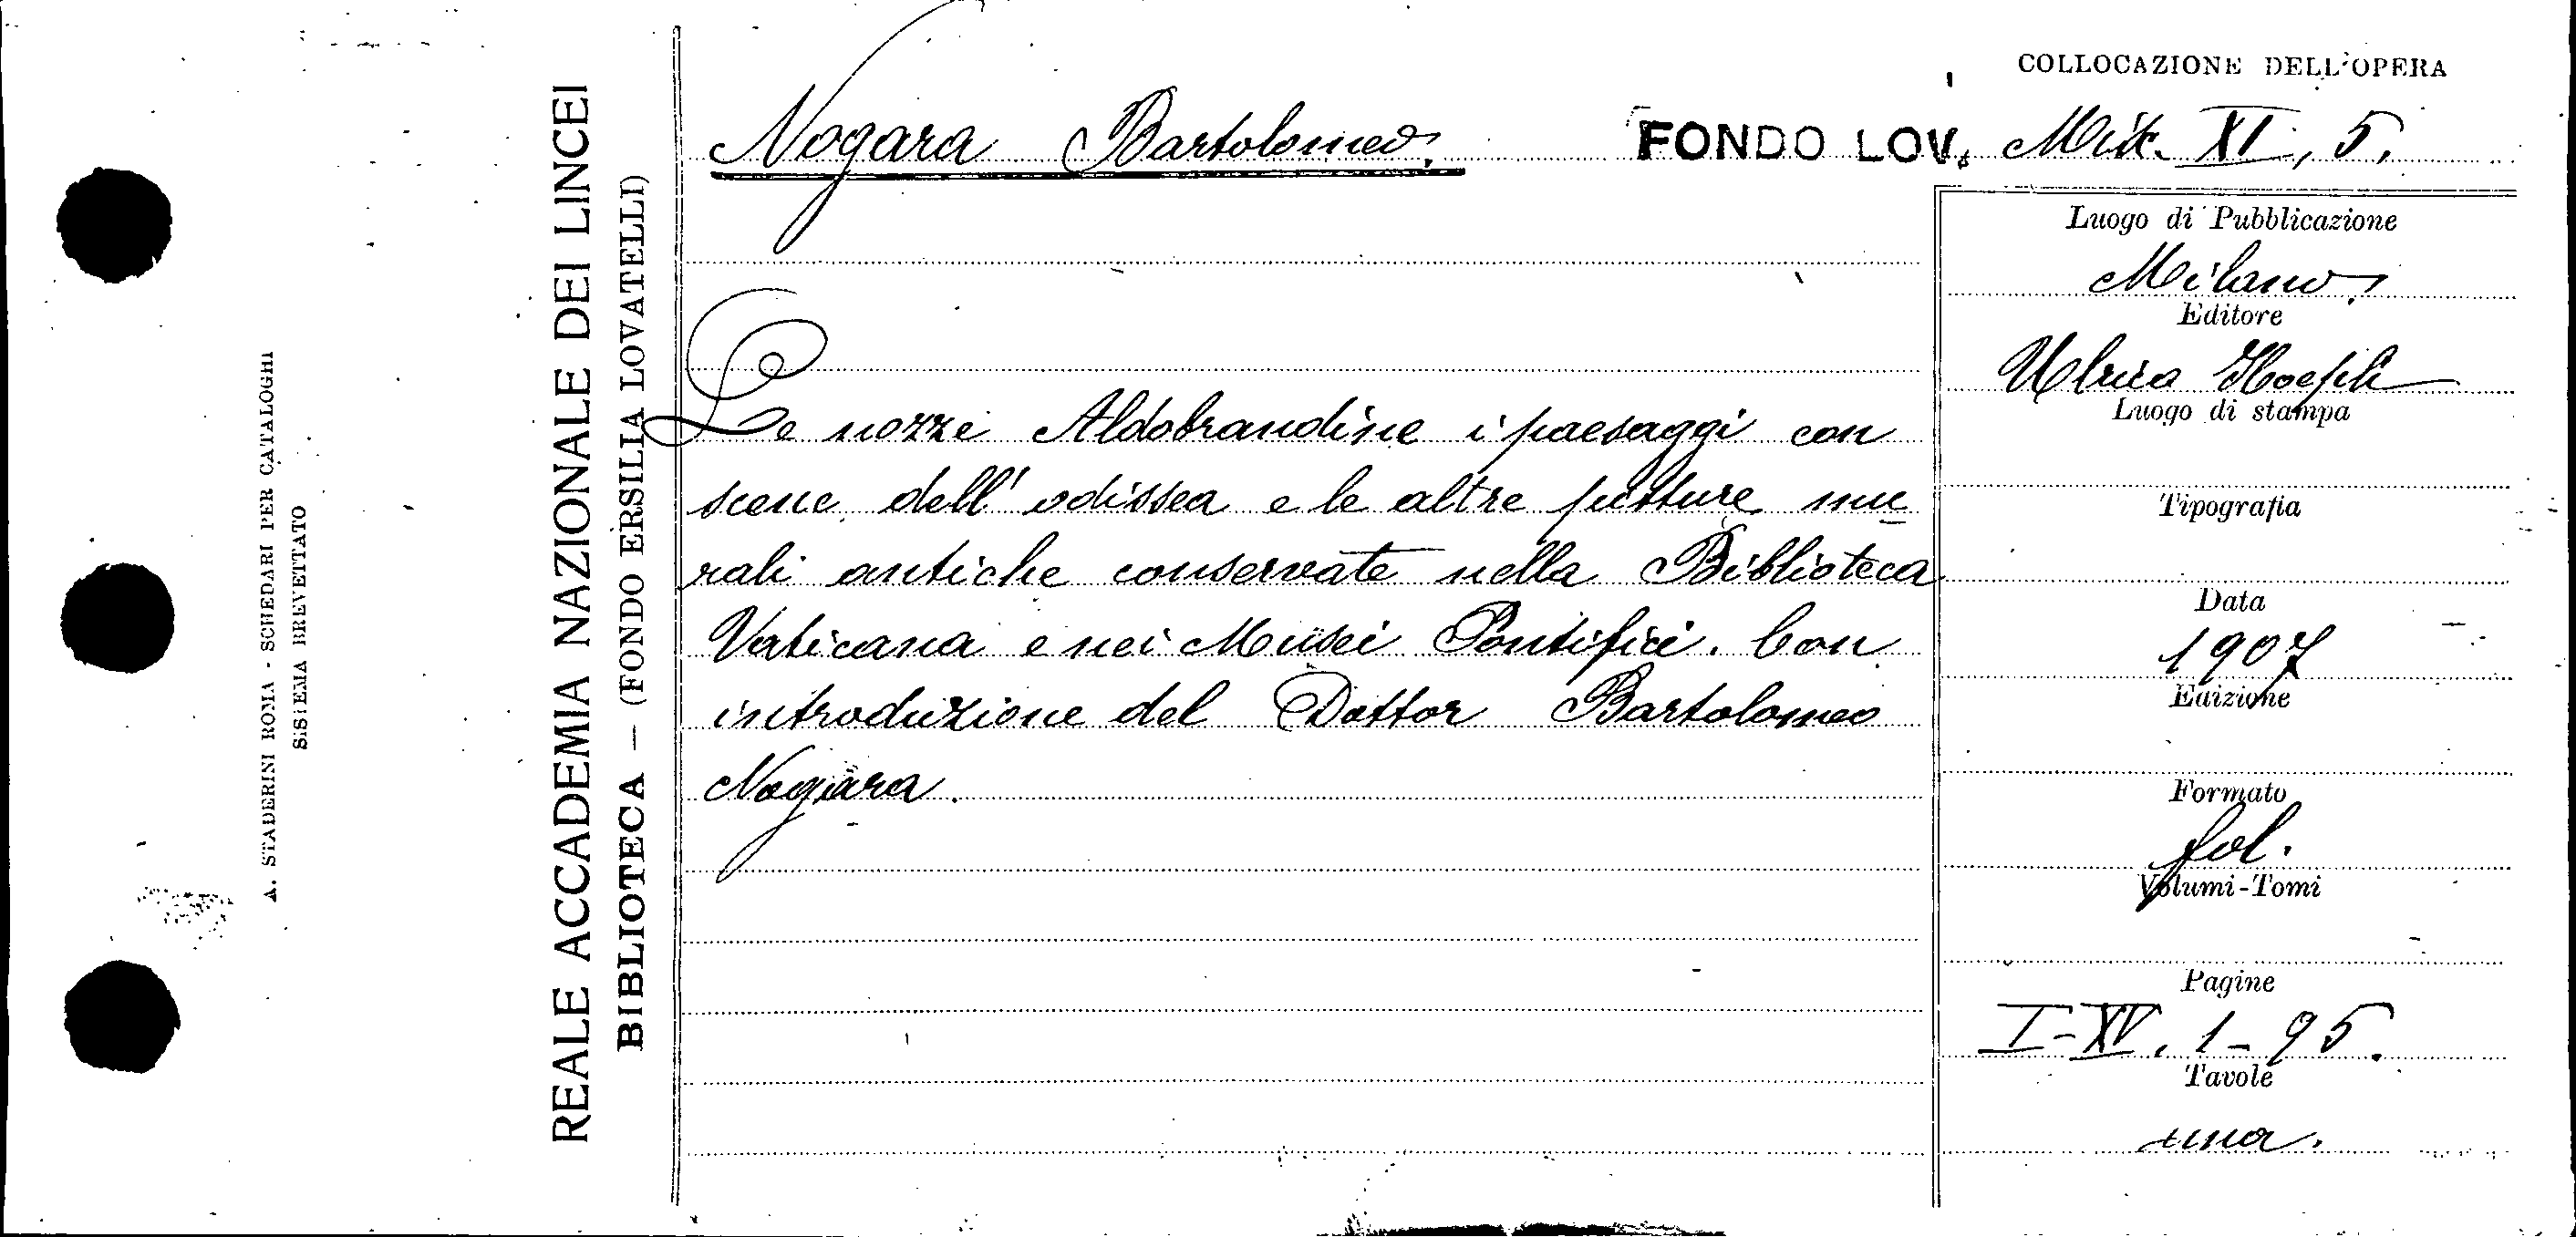 A. STADERINI ROMA - SCHEDARI PER CATALOGHI
SISTEMA BREVETTATO
REALE ACCADEMIA NAZIONALE DEI LINCEI
BIBLIOTECA — (FONDO ERSILIA LOVATELLI)
COLLOCAZIONE DELL'OPERA
Nogara Bartolomeo. FONDO LOV. XI, 5.
Le nozze Aldobrandine i paesaggi con
scene dell' odissea e le altre pitture mu
rali antiche conservate nella Biblioteca
Vaticana e nei Musei Pontifici. Con
introduzione del Dottor Bartolomeo
Nogara.
Luogo di Pubblicazione
Milano.
Editore
Ulrico Hoepli
Luogo di stampa
Tipografia
Data
1907
Edizione
Formato
fol.
Volumi-Tomi
Pagine
I-XV. 1-95.
Tavole
una.